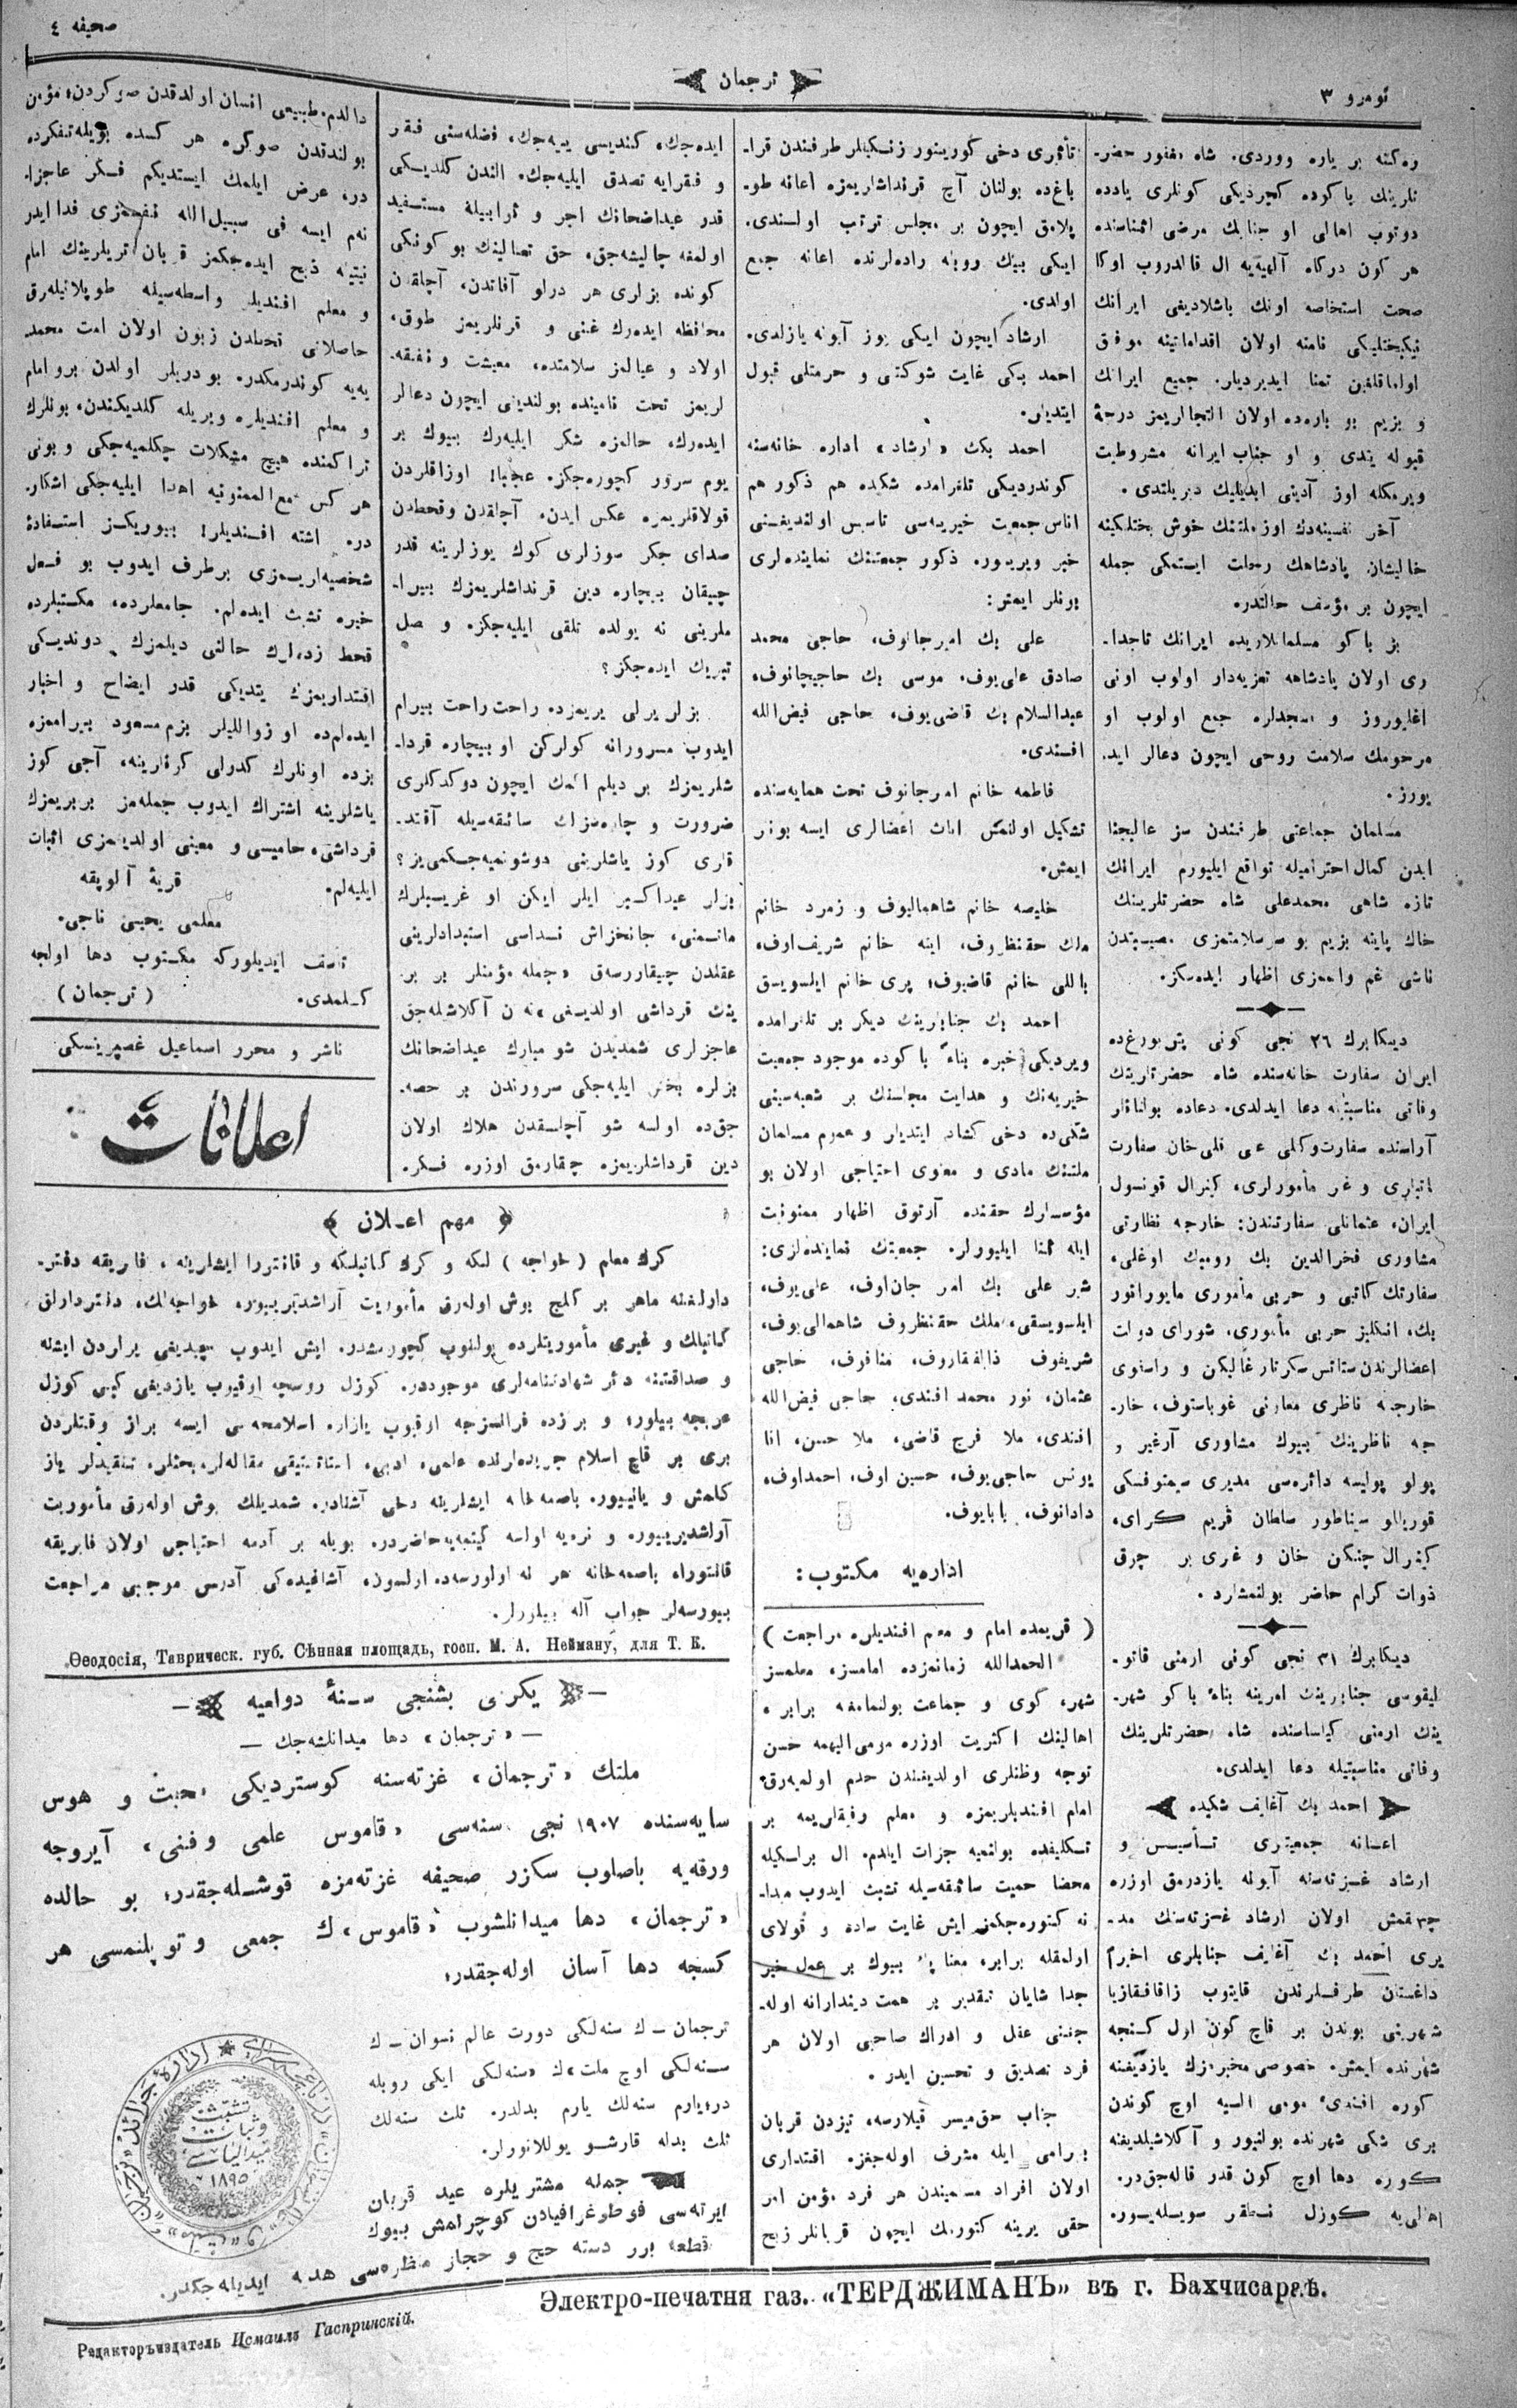 نومرو ٣
ترجمان
صحيفه ٤
وه كنه بر ياره ووردى. شاه مغفور حضر-
تلرينك باكوده كچرديكى كونلرى يادده
دوتوب اهالى او جنابك مرضى اثناسنده
هر كون دركاه آلهيه‌يه ال قالدروب اوكا
صحت استخاصه اونك باشلاديغى ايرانك
نيكبختليكى نامنه اولان اقداماتينه موفق
اولماقلغين تمنا ايديرديلر. جميع ايرانك
و بزيم بو باره‌ده اولان التجالريمز درجۀ
قبوله يتدى و او جناب ايرانه مشروطيت
ويرمكله اوز آدينى ابديليك ديريلتدى.
آخر نفسينه‌دك اوز ملتنك خوش بختلكينه
خاليشان پادشاهك رحلت ايستمكى جمله
ايچون بر مؤسف حالتدر.
بز باكو مسلمانلاريده ايرانك تاجدا-
رى اولان پادشاهه تعزيه‌دار اولوب اونى
اغليوروز و مسجدلره جمع اولوب او
مرحومك سلامت روحى ايچون دعالر ايد.
يورز.
مسلمان جماعتى طرفندن سز عاليجنا
ابدن كمال احتراميله توقع ايليورم ايرانك
تازه شاهى محمدعلى شاه حضرتلرينك
خاك پاينه بزيم بو سرسلامتمزى مصيبتدن
ناشى غم والممزى اظهار ايده‌سكز.
ديكابرك ٢٦ نجى كونى پتربورغده
ايران سفارت خانه‌سنده شاه حضرتلرينك
وفاتى مناسبتيله دعا ايدلدى. دعاده بولنانلر
آراسنده سفارت وكلى على قلى خان سفارت
ايران، عثمانلى سفارتندن: خارجه نظارتى
مشاورى فخرالدين بك رومبك اوغلى،
سفارتك كاتبى و حربى مأمورى مايوراتور
بك، انكليز حربى مأمورى، شوراى دولت
خارجه ناظرى معاونى غوباستوف، خار-
جه ناظرينك بيوك مشاورى آرغير و
پولو پوليسه دائره‌سى مديرى سيمنوفسكى
قوريللو سيناطور سلطان قريم كراى،
كينرال چنكز خان و غيرى بر چوق
ذوات كرام حاضر بولنمشلرد.
ديكابرك ٣١ نجى كونى ارمنى قاتو-
ليقوسى جنابرينك امرينه بناءً باكو شهر-
ينك ارمنى كلياساسنده شاه حضرتلرينك
وفاتى مناسبتيله دعا ايدلدى.
احمد بك آغايف شكيده
اعانه جمعيتلرى تأسيس و
ارشاد غزته‌سنه آبونه يازدرمق اوزره
چقمش اولان ارشاد غزته‌سنك مد-
يرى احمد بك آغايف جنابلرى اخيراً
داغستان طرفلرندن قايتوب زاقافقازيا
شهرينى بوندن بر قاچ كون اول كنجه
شهرنده ايمش. خصوصى مخبرمزك يازديغنه
كوره افندىء مومى اليه اوچ كوندن
برى شكى شهرنده بولنيور و آكلاشيلديغنه
كوره دها اوچ كون قدر قاله‌جقدر.
اهالى‌يه كوزل نطقلر سويله‌يور.
تأثيرى دخى كورينور زنكينلر طرفندن قرا-
باغده بولنان آچ قرنداشلريمزه اعانه طو-
پلامق ايچون بر مجلس ترتب اولندى.
ايكى بيك روبله راده‌لرنده اعانه جمع
اولدى.
ارشاد ايچون ايكى يوز آبونه يازلدى.
احمد بكى غايت شوكتى و حرمتلى قبول
ايتديلر.
احمد بك «ارشاد» اداره خانه‌سنه
كوندرديكى تلغرامده شكيده هم ذكور هم
اناس جمعيت خيريه‌سى تأسس اولنديغنى
خبر ويريور. ذكور جمعيتنك نماينده‌لرى
بونلر ايمش:
على بك امير جانوف، حاجى محمد
صادق على‌يوف، موسى بك حاجيچانوف،
عبدالسلام بك قاضى‌يوف، حاجى فيض‌الله
افندى.
فاطمه خانم اميرجانوف تحت حمايه‌سنده
تشكيل اولنمش اناث اعضالرى ايسه بونلر
ايمش.
خليصه خانم شاهمالييوف و زمرد خانم
ملك حقنظروف، اينه خانم شريف‌اوف،
باللى خانم قاضيوف؛ پرى خانم ايلسويسق
احمد بك جنابلرينك ديكر بر تلغرامده
ويرديكى خبره بناءً باكوده موجود جمعيت
خيريه‌نك و هدايت مجلسنك بر شعبه‌سينى
شكيده دخى كشاد ايتديلر و عموم مسلمان
ملتنك مادى و معنوى احتياجى اولان بو
مؤسسلرك حقنده آرتوق اظهار ممنونيت
ايله تمنا ايليورلر. جمعيتك نماينده‌لرى:
شير على بك امير جان‌اوف، على‌يوف،
ايلسويسقى، ملك حقنظروف شاهمالى‌يوف،
شريفوف ذالفقاروف، منافوف، حاجى
عثمان، نور محمد افندى، حاجى فيض‌الله
افندى، ملا فرج قاضى، ملا حسن، اغا
يونس حاجى‌يوف، حسين اوف، احمداوف،
دادانوف، بابايوف.
اداره‌يه مكتوب:
( قريمده امام و معلم افنديلره مراجعت )
الحمدالله زمانمزده امامسز، معلمسز
شهر، كوى و جماعت بولنمامغه برابر،
اهالينك اكثريت اوزره مومى‌اليهمه حسن
توجه وظنلرى اولديغندن حلم اوليه‌رق
امام افنديلريمزه و معلم رفيقلريمه بر
تكليفده بولنميه جرات ايلدم. ال براكيله
محضا حميت سائقه‌سيله تشبث ايدوب ميدا-
نه كتوره‌جكمز ايش غايت ساده و قولاى
اولمقله برابر، معناً پك بيوك بر عمل خير
جدا شايان تقدير بر همت ديندارانه اوله-
جغنى عقل و ادراك صاحبى اولان هر
فرد تصديق و تحسين ايدر.
جناب حق ميسر قيلارسه، تيزدن قربان
بيرامى ايله مشرف اوله‌جغز. اقتدارى
اولان افراد مسلميندن هر فرد مؤمن امر
حقى يرينه كتورمك ايچون قربانلر زبح
ايده‌جك، كنديسى ييه‌جك، فضله‌سنى فقر
و فقرايه تصدق ايليه‌جك، الندن كلديكى
قدر عيداضحانك اجر و ثوابيله مستفيد
اولمغه چاليشه‌جق، حق تعالينك بو كونكى
كونده بزلرى هر درلو آفاتدن، آچلقدن
محافظه ايده‌رك غنى و قرنلريمز طوق،
اولاد و عيالمز سلامتده، معيشت و نفقه-
لريمز تحت تأمينده بولنديغى ايچون دعالر
ايده‌رك، حالمزه شكر ايليه‌رك بيوك بر
يوم سرور كچوره‌جكز. عجبا! اوزاقلردن
قولاقلريمزه عكس ايدن، آچلقدن وقحطدن
صداى جكر سوزلرى كوك يوزلرينه قدر
چيقان بيچاره دين قرنداشلريمزك بيرا-
ملرينى نه يولده تلقى ايليه‌جكز. و نصل
تبريك ايده‌جكز؟
بزلر يرلى يريمزده راحت راحت بيرام
ايدوب مسرورانه كولركن او بيچاره قردا-
شلريمزك بر ديلم اتمك ايچون دوكدكلرى
ضرورت و چاره‌سزلك سائقه‌سيله آقتد-
قلرى كوز ياشلرينى دوشونميه‌جكمى‌يز؟
بزلر عيداكبر ايلر ايكن او غريبلرك
ماتمنى، جانخراش نداسى استمدادلرينى
عقلدن چيقاررسق «جمله مؤمنلر بر بر
ينك قرداشى اولديغى» نه دن آكلاشيله‌جق
عاجزلرى شمديدن شو مبارك عيداضحانك
بزلره بخش ايليه‌جكى سروردن بر حصه-
جق‌ده اولسه شو آچلقدن هلاك اولان
دين قرداشلريمزه چقارمق اوزره فكره.
دالدم. طبيعى انسان اولدقدن صوكردن، مؤمن
بولندقدن صوكره هر كسده بويله تفكرده
در، عرض ايلمك ايستديكم فكر عاجزا.
نه‌م ايسه فى سبيل‌الله نفسمزى فدا ايدر
نيتيله ذبح ايده‌جكمز قربان تريلرينك امام
و معلم افنديلر واسطه‌سيله طوپلانيله‌رق
حاصلاتى قحطدن زبون اولان امت محمد-
يه‌يه كوندرمكدر. بو دريلر اولدن برو امام
و معلم افنديلره ويريله كلديكندن، بونلرك
تراكمنده هيچ مشكلات چكلميه‌جكى و بونى
هر كس مع‌الممنونيه اهدا ايليه‌جكى اشكار.
دره اشته افنديلر! بيوريكز استفادۀ
شخصيه‌لريمزى برطرف ايدوب بو فعل
خيره تشبث ايده‌لم. جامعلرده، مكتبلرده
قحط زده‌لرك حالنى ديلمزك دونديكى
اقتداريمزك يتديكى قدر ايضاح و اخبار
ايده‌لم‌ده او زواللیلر بزم مسعود بيرامزه
بزده اونلرك كدرلى كرهلرينه، آجى كوز
ياشلرينه اشتراك ايدوب جمله‌مز بربريمزك
قرداشى، حاميسى و معينى اولديغمزى اثبات
ايليه‌لم. قريۀ آلوپقه
معلمى يحيى ناجى.
تأسف ايديلوركه مكتوب دها اولجه
كلمدى. (ترجمان)
ناشر و محرر اسماعيل غصپرينسكى
اعلانات
﴿ مهم اعلان ﴾
كرك معلم ( خواجه ) لكه و كرك كاتبلكه و قانتورا ايشلرينه، فابريقه دفتر-
دارلغنه ماهر بر كنج بوش اوله‌رق مأموريت آراشديرييور. خواجه‌لك، دفتردارلق
كاتبلك و غيرى مأموريتلرده بولنوب كچورمشدر. ايش ايدوب سچيديغى يرلردن ايشنه
و صداقتنه دائر شهادتنامه‌لرى موجوددر. كوزل روسجه اوقيوب يازديغى كبى كوزل
عربجه بيلور؛ و برزده فرانسزجه اوقيوب يازار. اسلامجه‌سى ايسه براز وقتلردن
برى بر قاچ اسلام جريده‌لرنده علمى، ادبى، استاتستيقى مقاله‌لر، بحثلر، تنقيدلر ياز
كلمش و يازييور. باصمه‌خانه ايشلرينه دخى آشنادر. شمديلك بوش اوله‌رق مأموريت
آراشديرييوره و نره‌يه اولسه كيتمه‌يه حاضردر. بويله بر آدمه احتياجى اولان فابريقه
قانتورا، باصمه‌خانه هر نه اولورسه‌ده اولسون، آشاغيده‌كى آدرس موجبى مراجعت
بيورسه‌لر جواب آله بيلورلر.
Ѳеодосія, Таврическ. губ. Сѣнная площадь, госп. М. А. Нейману, для Т. К.
يكرمى بشنجى سنۀ دواميه
— «ترجمان» دها ميدانلشه‌جك —
ملتك «ترجمان» غزته‌سنه كوسترديكى محبت و هوس
سايه‌سنده ١٩٠٧ نجى سنه‌سى «قاموس علمى وفنى» آيروجه
ورقه‌يه باصلوب سكزر صحيفه غزته‌مزه قوشله‌جقدر؛ بو حالده
«ترجمان» دها ميدانلشوب «قاموس»ك جمعى و توپلنمسى هر
كسجه دها آسان اوله‌جقدر؛
ترجمان-ك سنه‌لكى دورت عالم نسوان-ك
سنه‌لكى اوچ ملت»ك «سنه‌لكى ايكى روبله
در؛ يارم سنه‌لك يارم بدلدر. ثلث سنه‌لك
ثلث بدله قارشو يوللانورلر.
جمله مشتريلره عيد قربان
ايرته‌سى فوطوغرافيادن كوچرلمش بيوك
قطعه برر دسته حج و حجاز منظره‌سى هديه ايديله‌جكدر.
١٨٩٥
Электро-печатня газ. «ТЕРДЖИМАНЪ» въ г. Бахчисараѣ.
Редакторъиздатель Исмаилъ Гаспринскій.